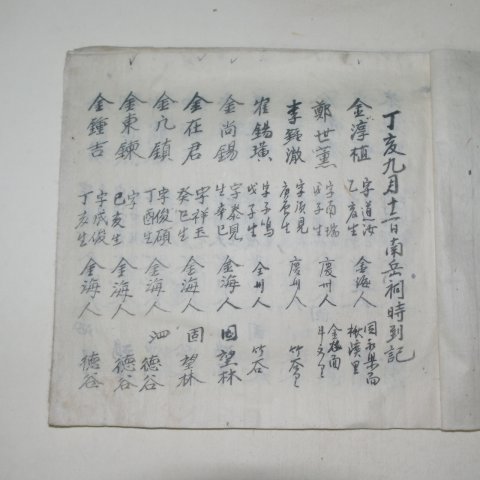 丁亥九月十一日南岳祠時到記
金淳植 字道汝 乙亥生 金海人 固永果面
鄭世薰 字南瑞 甲子生 慶州人
李鍾澈 字順見 庚辰生 慶州人 竹谷
崔錫璜 字子鳴 戊子生 全州人 竹谷
金尚錫 字泰見 辛巳生 金海人 固望林
金在君 字祥玉 癸巳生 金海人 固望林
金凡鎮 字俊碩 丁酉生 金海人 泗德谷
金東鍊 字 己亥生 金海人 德谷
金鍾吉 字成俊 丁亥生 金海人 德谷